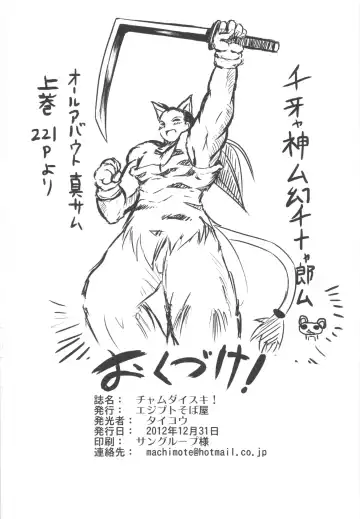 千牙ャ神ム幻チナャ郎ム
オールアバウト真サム
上巻
221Pより
おくづけ!
誌名： チャムダイスキ！
発行： エジプトそば屋
発光者： タイコウ
発行日： 2012年12月31日
印刷： サングループ様
連絡先： machimote@hotmail.co.jp